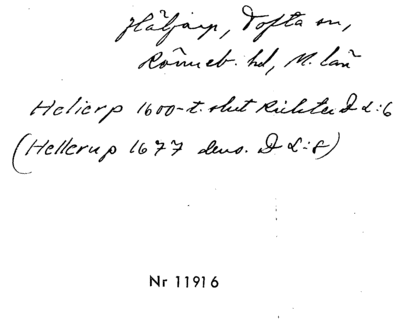 Häljarp, Tofta sn,
Rönneb. hd, M. län
Helierp 1600-t. slut Richter D α:6
(Hellerup 1677 dens. D α:8)
Nr 11916